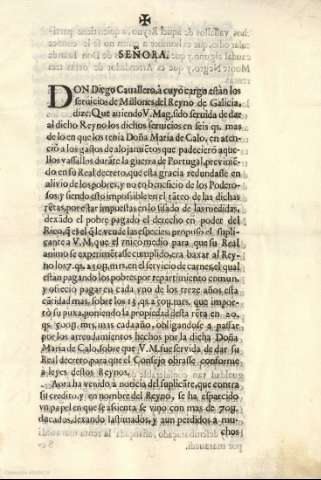 ✠
SEÑORA.
DON Diego Cauallero, à cuyo cargo están los
seruicios de Millones del Reyno de Galicia,
dize: Que auiendo V. Mag. sido seruida de dar
al dicho Reyno los dichos seruicios en seis qs. mas
de lo en que los tenia Doña Maria de Calo, en aten-
ció a los gastos de alojamiẽtos que padecierõ aque-
llos vassallos durãte la guerra de Portugal, previniẽ-
do en su Real decreto, que esta gracia redundasse en
alivio de los pobres, y no en beneficio de los Podero-
sos, y siendo esto impossible en el tãteo de las dichas
rẽtas, por estar impuestas en lo sisado de las medidas,
dexãdo el pobre pagado el derecho en poder del
Rico, q̃ es el q̃ le vende las especies, propuso el supli-
cante a V. M. que el vnico medio para que su Real
animo se experimẽtasse cumplido, era baxar al Rey-
no los 7. qs. en el servicio de carnes, el qual
estàn pagando los pobres por repartimiento comun,
y ofreciò pagar en cada vno de los treze años esta
cãtidad mas, sobre los 13. qs. mrs. que impor-
tò su puxa, poniendo la propiedad desta rẽta en 20.
qs. mrs. mas cada año, obligandose a passar
por los arrendamientos hechos por la dicha Doña
Maria de Calo, sobre que V. M. fue servida de dar su
Real decreto, para que el Consejo obrasse conforme
a leyes destos Reynos.
Aora ha venido a noticia del suplicãte, que contra
su credito, y en nombre del Reyno, se ha esparcido
vn papel en que se assienta se vino con mas de 70y.
ducados, dexando lastimados, y aun perdidos a mu-
chos